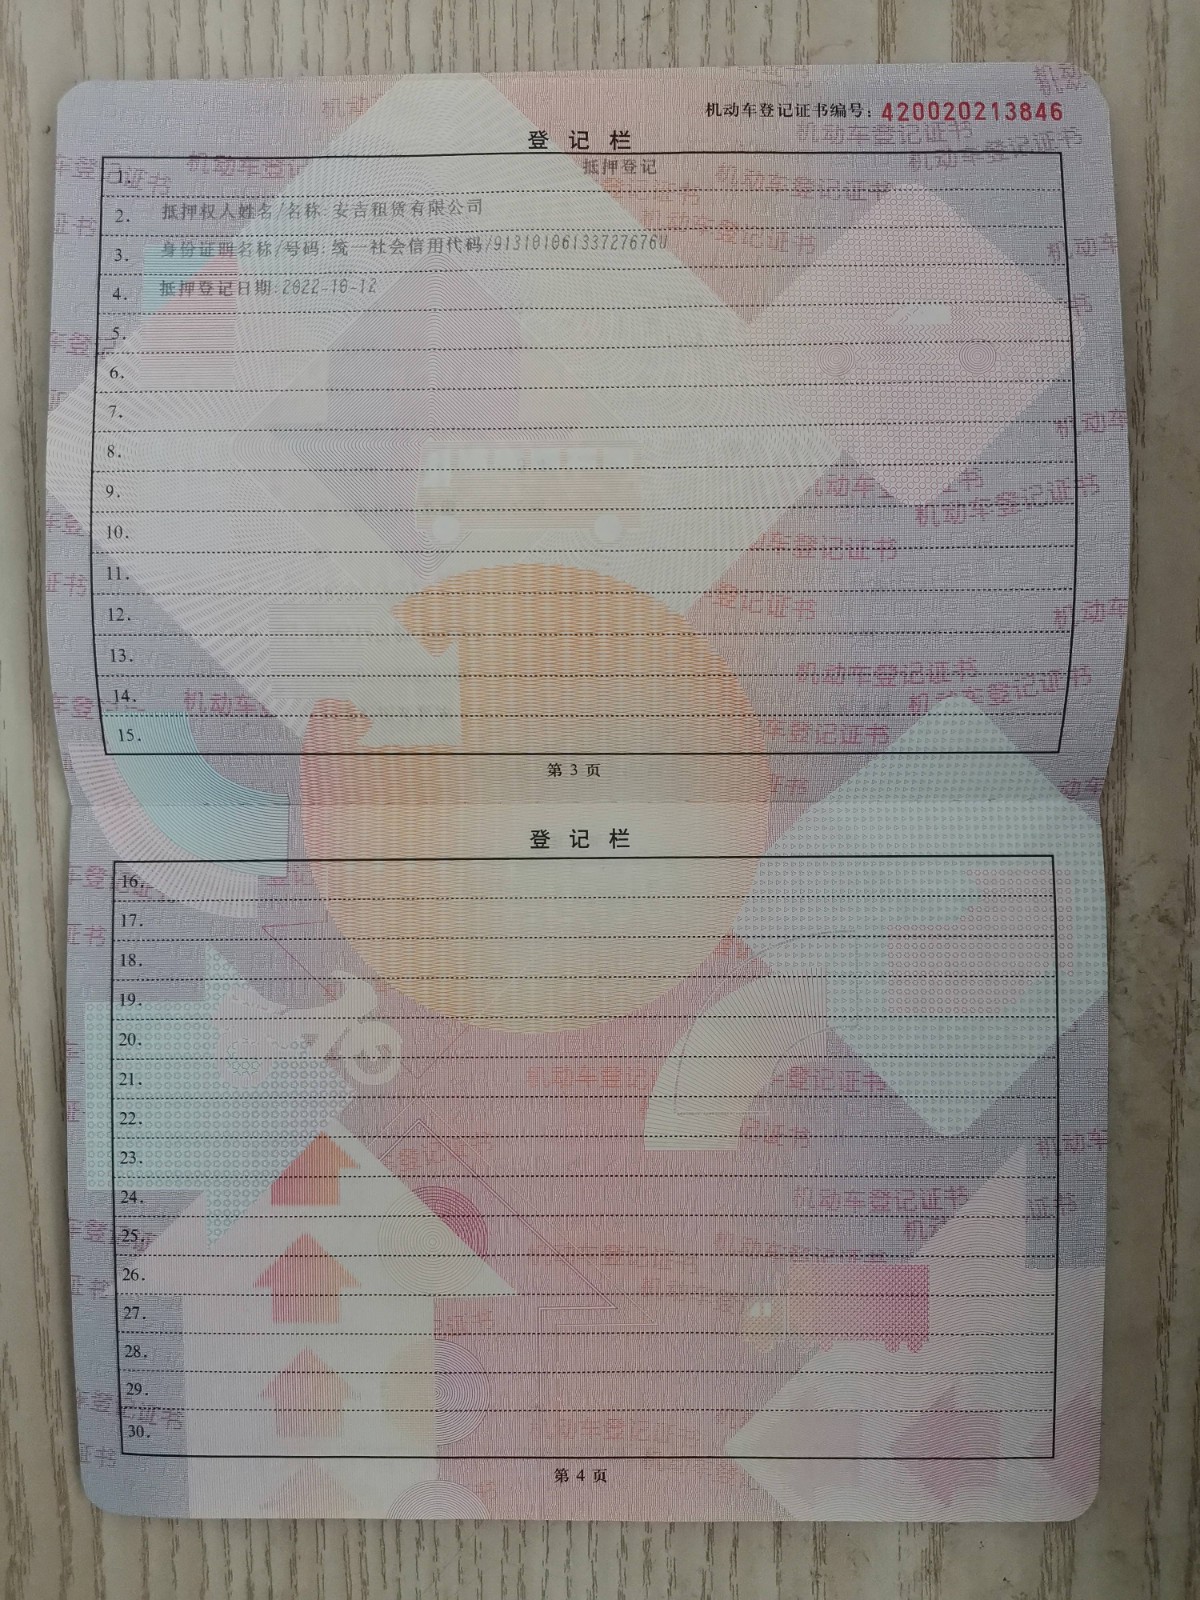 机动车登记证书编号：420020213846
登 记 栏
1. 抵押登记
2. 抵押权人姓名/名称:安吉租赁有限公司
3. 身份证明名称/号码:统一社会信用代码/91310106133727676U
4. 抵押登记日期:2022-10-12
5.
6.
7.
8.
9.
10.
11.
12.
13.
14.
15.
第 3 页
登 记 栏
16.
17.
18.
19.
20.
21.
22.
23.
24.
25.
26.
27.
28.
29.
30.
第 4 页